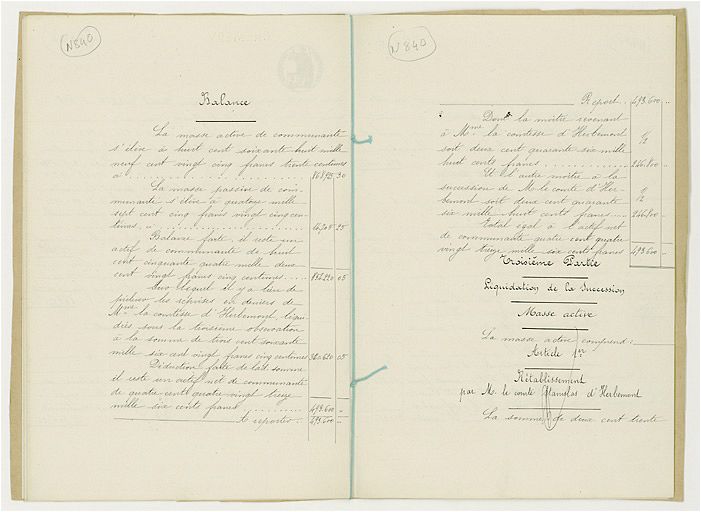 N 840
Balance
La masse active de communauté
s'élève à huit cent soixante huit mille
neuf cent vingt cinq francs trente centimes
à 868.925 30
La masse passive de com-
munauté s'élève à quatorze mille
sept cent cinq francs vingt cinq cen-
times, à 14.705 25
Balance faite, il reste un
actif de communauté de huit
cent cinquante quatre mille deux
cent vingt francs cinq centimes 854.220 05
Sur lequel il y a lieu de
prélever les reprises en deniers de
Mme la comtesse d'Herbemont, liqui-
dées sous la troisième observation
à la somme de trois cent soixante
mille six cent vingt francs cinq centimes 360.620 05
Déduction faite de la somme
il reste un actif net de communauté
de quatre cent quatre vingt treize
mille six cents francs 493.600 "
A reporter 493.600 "
N 840
Report 493.600 "
Dont la moitié revenant
à Mme la comtesse d'Herbemont 1/2
soit deux cent quarante six mille
huit cents francs 246.800 "
Et l'autre moitié à la
succession de M. le comte d'Her- 1/2
bemont soit deux cent quarante
six mille huit cents francs 246.800 "
Total égal à l'actif net
de communauté quatre cent quatre
vingt treize mille six cents francs 493.600 "
Troisième Partie
Liquidation de la Succession
Masse active
La masse active comprend:
Article 1er
Rétablissement
par M. le comte Stanislas d'Herbemont
La somme de deux cent trente